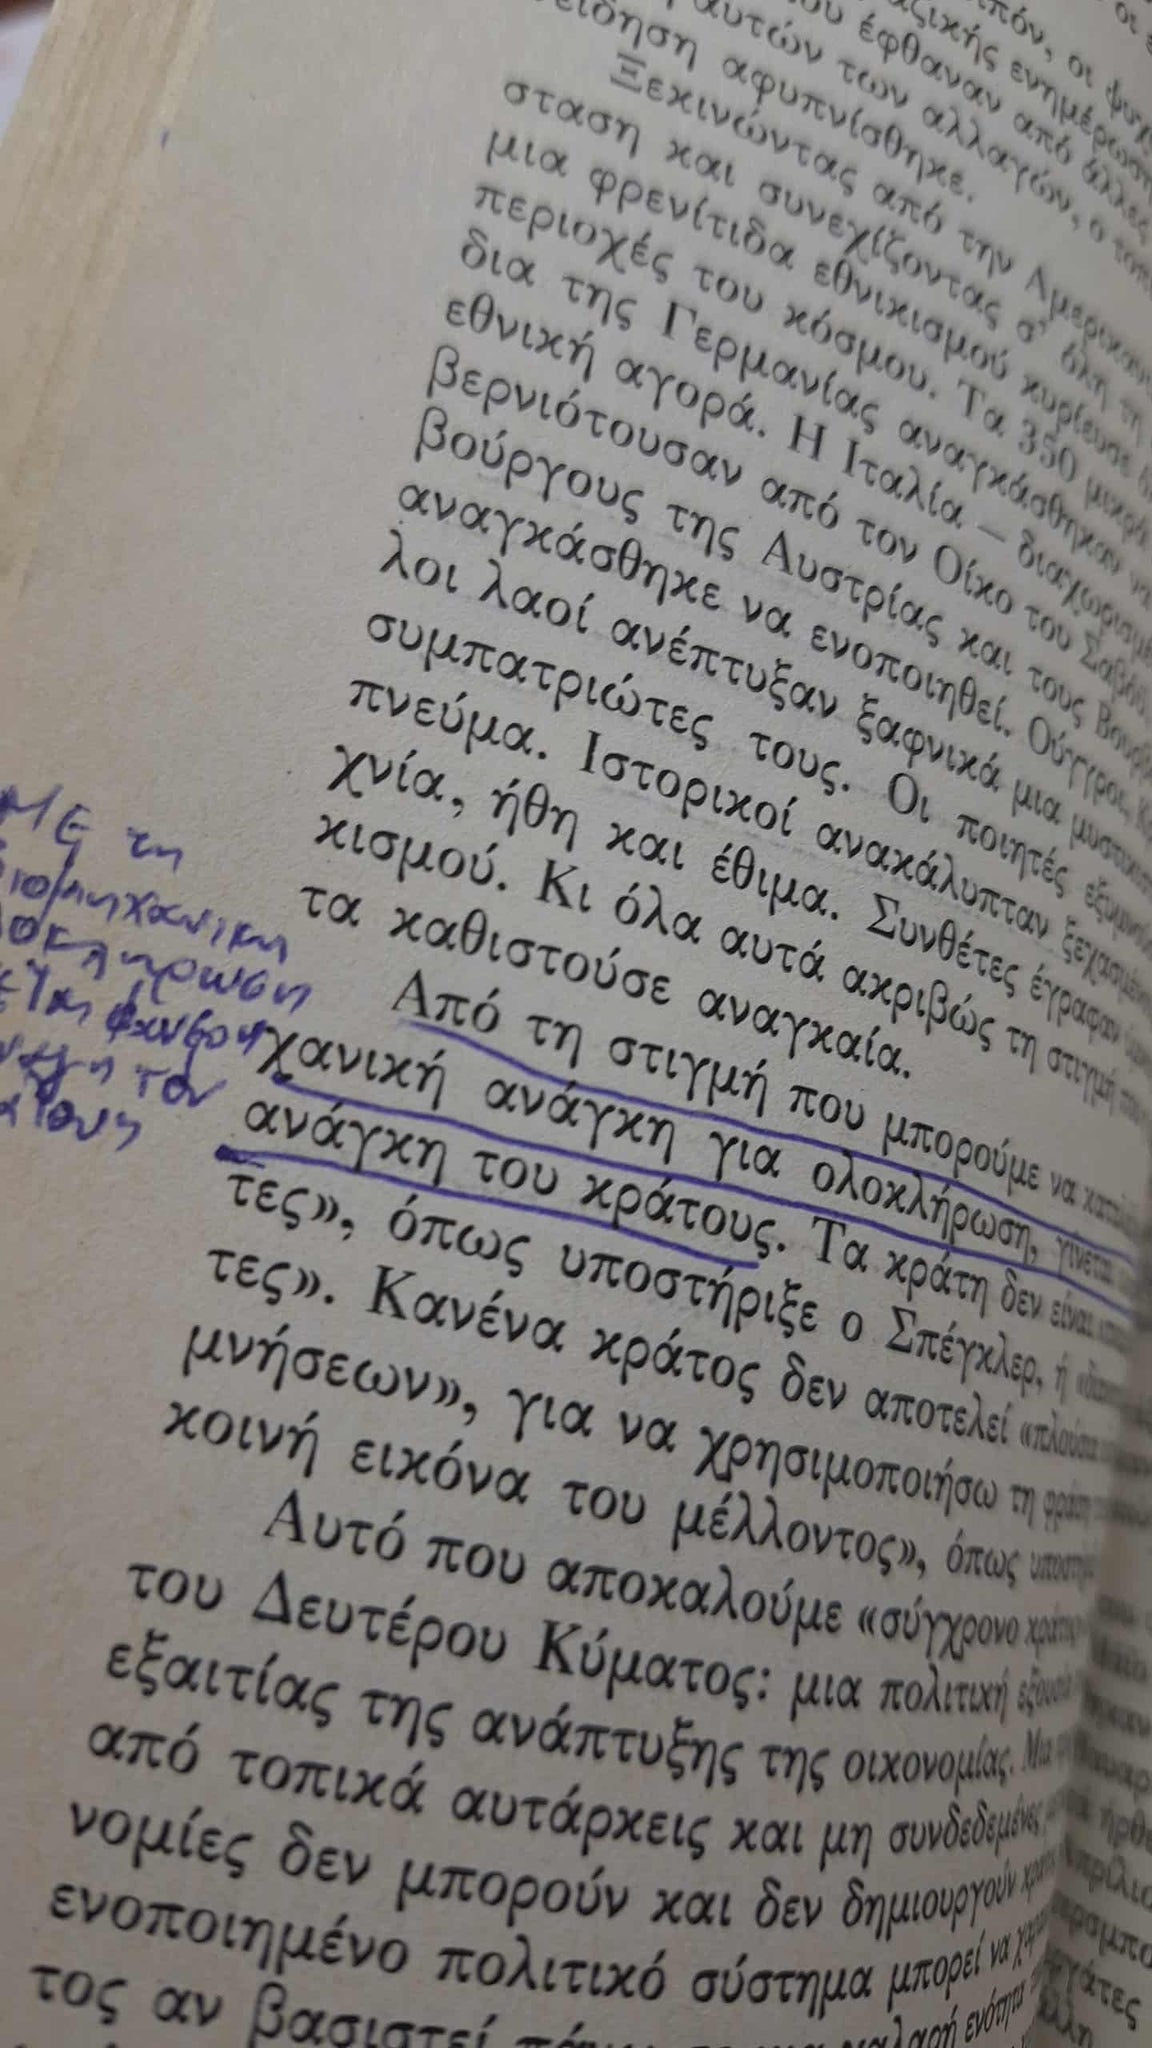 λοιπόν, οι
μαζικής ενημέρωσης
που έφθαναν από άλλες
αυτών των αλλαγών, ο
συνείδηση αφυπνίσθηκε.
Ξεκινώντας από την Αμερικαν
σταση και συνεχίζοντας σ' όλη τη
μια φρενίτιδα εθνικισμού κυρίευσε
περιοχές του κόσμου. Τα 350 μικρά
δια της Γερμανίας αναγκάσθηκαν να
εθνική αγορά. Η Ιταλία — διαχωρισμέ
βερνιότουσαν από τον Οίκο του Σαβόι
βούργους της Αυστρίας και τους Βουρβ
αναγκάσθηκε να ενοποιηθεί. Ούγγροι,
λοι λαοί ανέπτυξαν ξαφνικά μια μυστικι
συμπατριώτες τους. Οι ποιητές εξυμνού
πνεύμα. Ιστορικοί ανακάλυπταν ξεχασμέν
χνία, ήθη και έθιμα. Συνθέτες έγραφαν
κισμού. Κι όλα αυτά ακριβώς τη στιγμή
τα καθιστούσε αναγκαία.
Από τη στιγμή που μπορούμε να
χανική ανάγκη για ολοκλήρωση, γίνεται
ανάγκη του κράτους. Τα κράτη δεν είναι
τες», όπως υποστήριξε ο Σπέγκλερ, ή
τες». Κανένα κράτος δεν αποτελεί «πλούσια
μνήσεων», για να χρησιμοποιήσω τη φράση
κοινή εικόνα του μέλλοντος», όπως
Αυτό που αποκαλούμε «σύγχρονο
του Δευτέρου Κύματος: μια πολιτική εξουσία
εξαιτίας της ανάπτυξης της οικονομίας. Μια
από τοπικά αυτάρκεις και μη συνδεδεμένες
νομίες δεν μπορούν και δεν δημιουργούν
ενοποιημένο πολιτικό σύστημα μπορεί να
τος αν βασιστεί ενότητα
ΜΕ τη
βιομηχανική
ολοκληρωση
φανερη
τον